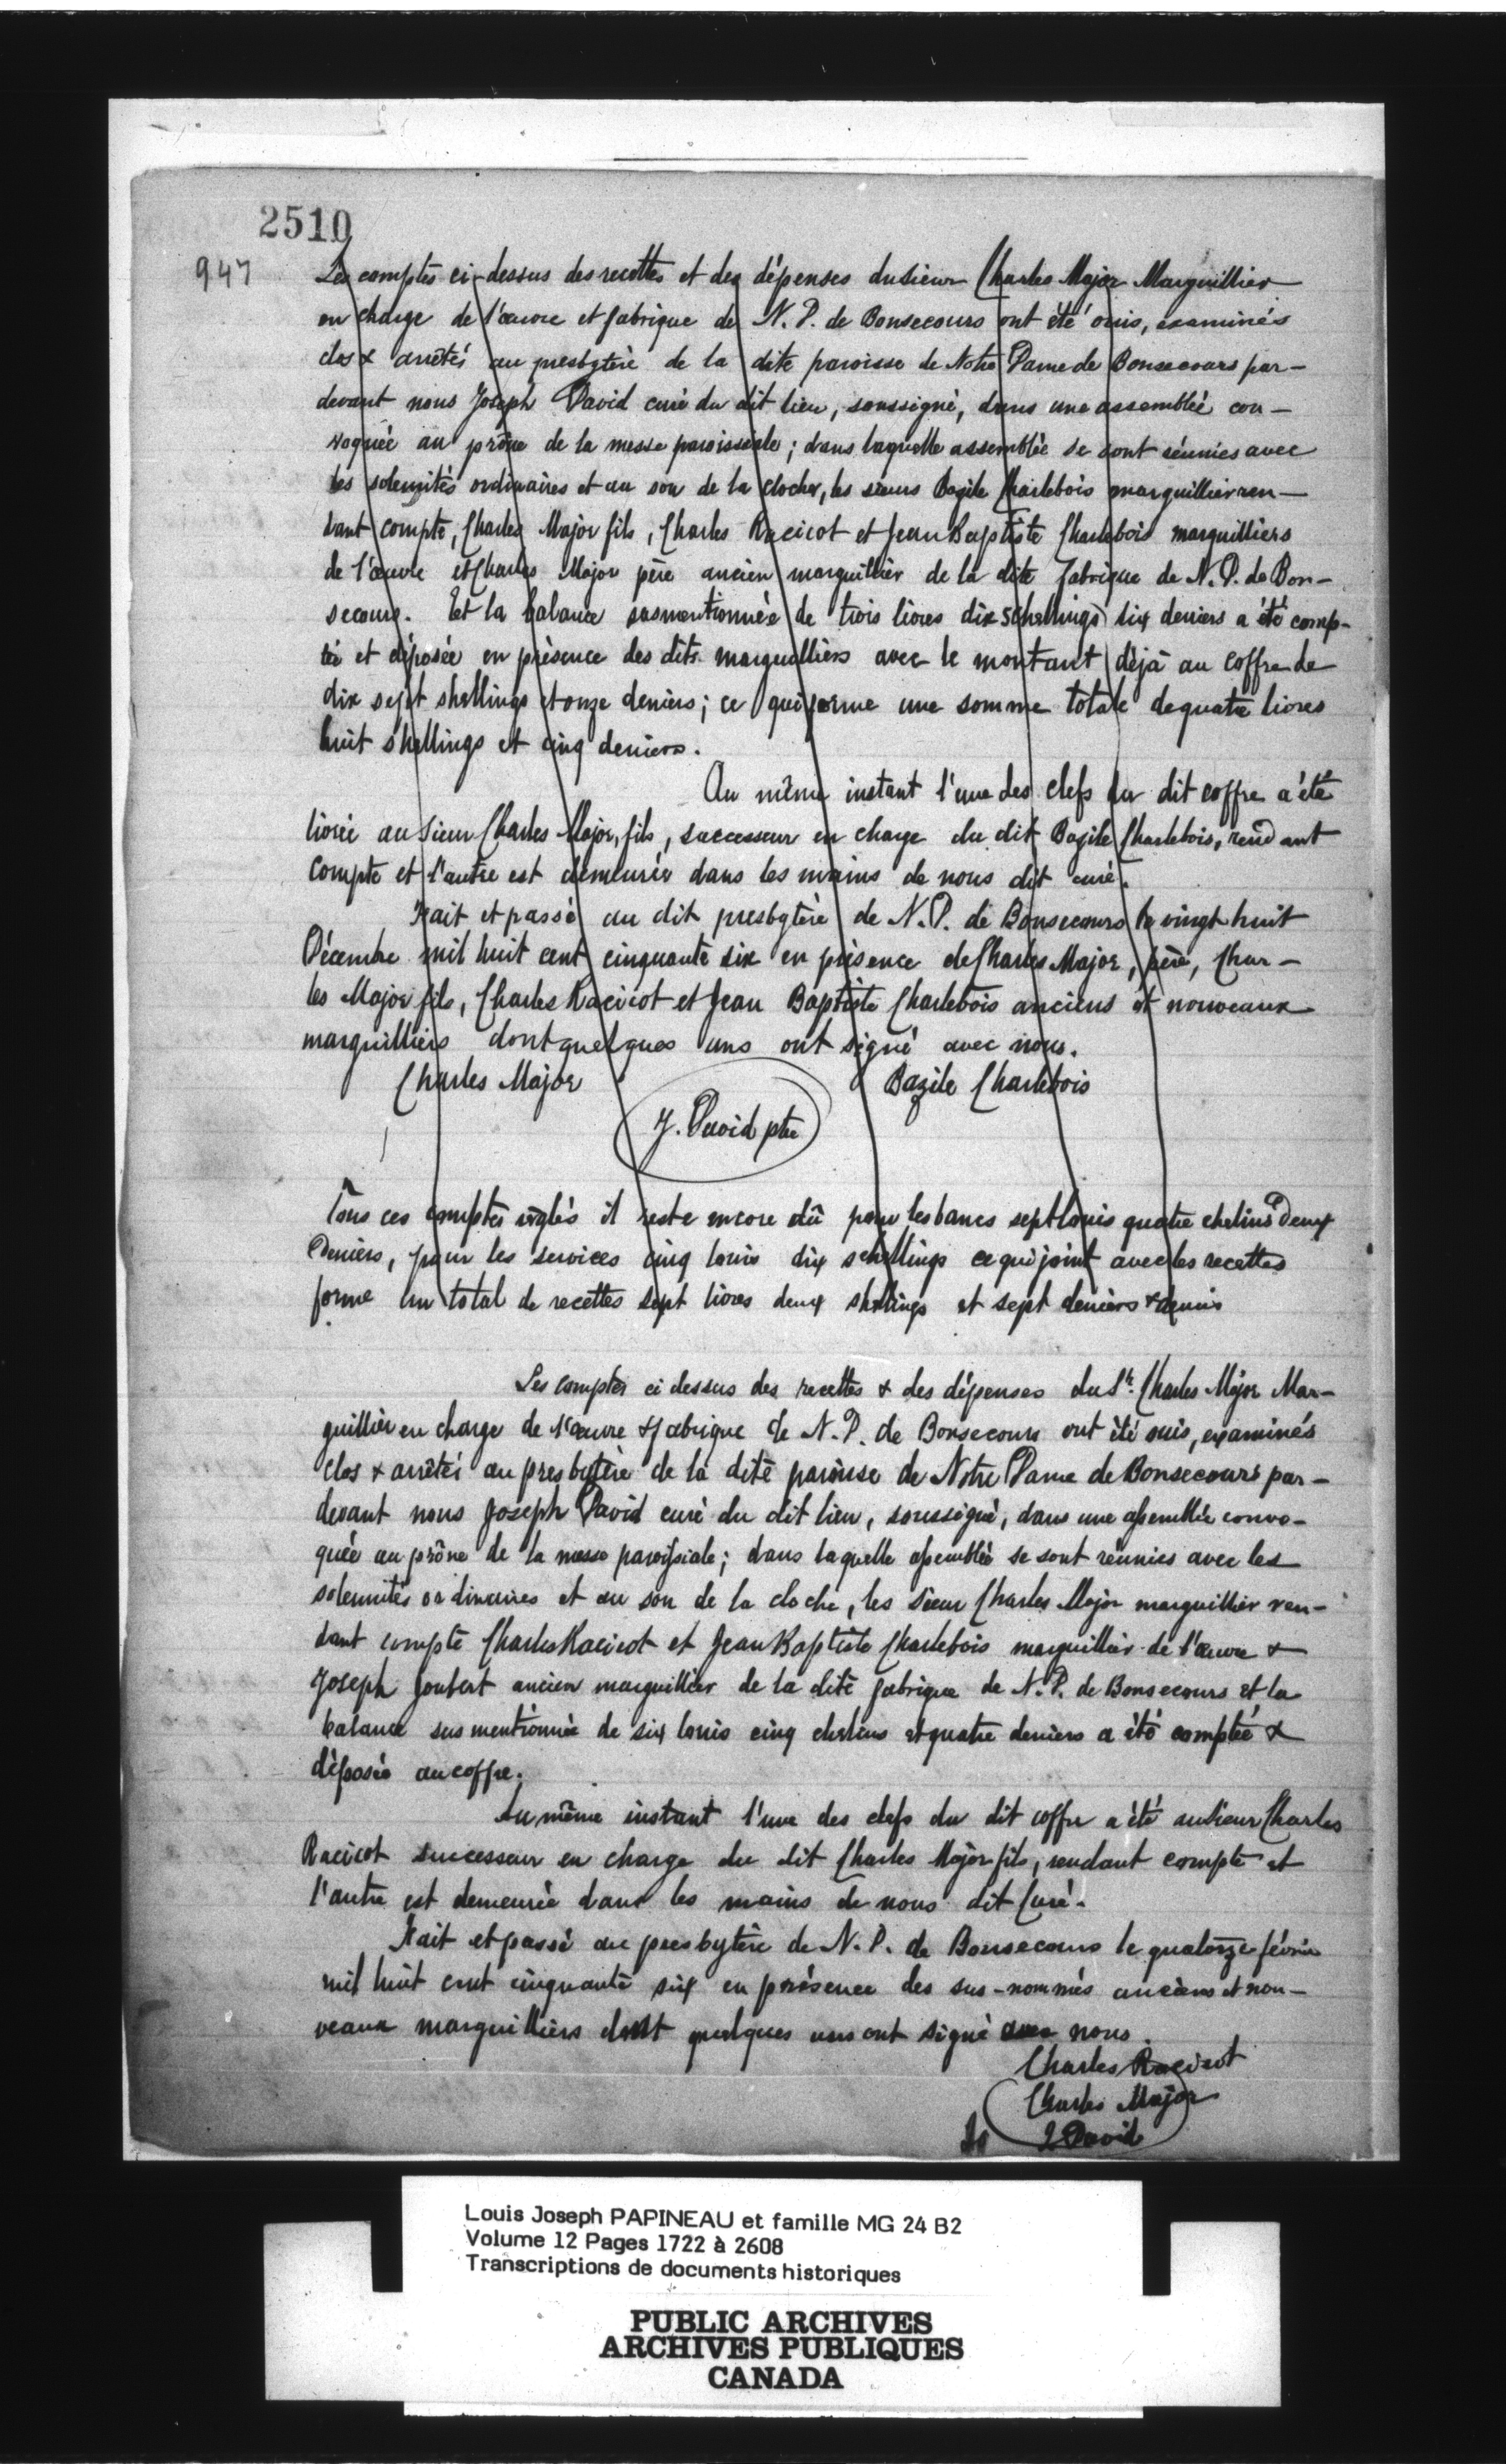 2510
947
Les comptes ci-dessus des recettes et des dépenses du sieur Charles Major Marguillier
en charge de l'œuvre et fabrique de N. D. de Bonsecours ont été ouis, examinés
clos & arrêtés au presbytère de la dite paroisse de Notre Dame de Bonsecours par-
devant nous Joseph David curé du dit lieu, soussigné, dans une assemblée con-
voquée au prône de la messe paroissiale; dans laquelle assemblée se sont réunies avec
les solemnités ordinaires et au son de la cloche, les sieurs Bazile Charlebois marguillier ren-
dant compte, Charles Major fils, Charles Racicot et Jean Baptiste Charlebois marguilliers
de l'œuvre et Charles Major père ancien marguillier de la dite fabrique de N. D. de Bon-
secours. Et la balance susmentionnée de trois livres dix schellings six deniers a été comp-
tée et déposée en présence des dits marguilliers avec le montant déjà au coffre de
dix sept shellings et onze deniers; ce qui forme une somme totale de quatre livres
huit shellings et cinq deniers.
Au même instant l'une des clefs du dit coffre a été
livrée au Sieur Charles Major, fils, successeur en charge du dit Bazile Charlebois, rendant
compte et l'autre est demeurée dans les mains de nous dit curé.
Fait et passé au dit presbytère de N. D. de Bonsecours le vingt huit
Décembre mil huit cent cinquante six en présence de Charles Major, père, Char-
les Major fils, Charles Racicot et Jean Baptiste Charlebois anciens et nouveaux
marguilliers dont quelques uns ont signé avec nous.
Charles Major Bazile Charlebois
J. David ptre
Tous ces comptes réglés il reste encore dû pour les bancs sept louis quatre chelins deux
Deniers, pour les services cinq louis dix schellings ce qui joint avec les recettes
forme un total de recettes sept livres deux shellings et sept deniers
Les comptes ci dessus des recettes & des dépenses du Sr. Charles Major Mar-
guillier en charge de l'œuvre & fabrique de N. D. de Bonsecours ont été ouis, examinés
clos & arrêtés au presbytère de la dite paroisse de Notre Dame de Bonsecours par-
devant nous Joseph David curé du dit lieu, soussigné, dans une assemblée convo-
quée au prône de la messe paroissiale; dans laquelle assemblée se sont réunies avec les
solennités ordinaires et au son de la cloche, les sieur Charles Major marguillier ren-
dant compte Charles Racicot et Jean Baptiste Charlebois marguillier de l'œuvre &
Joseph Joubert ancien marguillier de la dite fabrique de N. D. de Bonsecours et la
balance sus mentionnée de six louis cinq chelins et quatre deniers a été comptée &
déposée au coffre.
Au même instant l'une des clefs du dit coffre a été au Sieur Charles
Racicot successeur en charge du dit Charles Major fils, rendant compte et
l'autre est demeurée dans les mains de nous dit Curé.
Fait et passé au presbytère de N. D. de Bonsecours le quatorze février
mil huit cent cinquante six en présence des sus-nommés anciens et nou-
veaux marguilliers dont quelques uns ont signé avec nous.
Charles Racicot
Charles Major
J David
Louis Joseph PAPINEAU et famille MG 24 B2
Volume 12 Pages 1722 à 2608
Transcriptions de documents historiques
PUBLIC ARCHIVES
ARCHIVES PUBLIQUES
CANADA